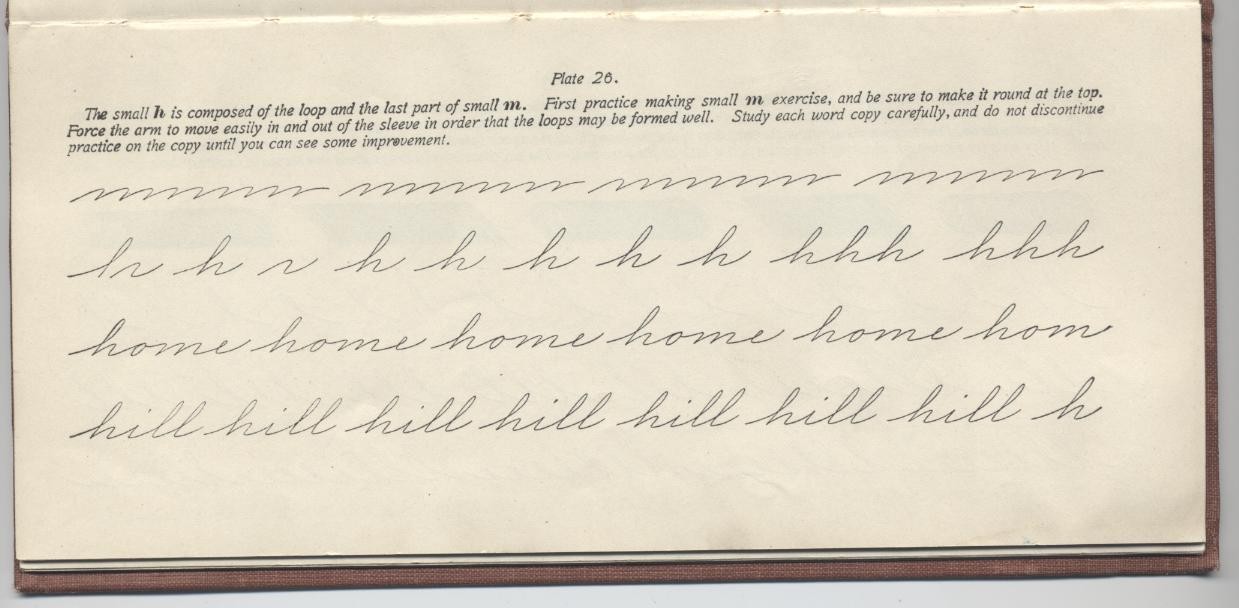 Plate 26.
The small h is composed of the loop and the last part of small m. First practice making small m exercise, and be sure to make it round at the top.
Force the arm to move easily in and out of the sleeve in order that the loops may be formed well. Study each word copy carefully, and do not discontinue
practice on the copy until you can see some improvement.
h h h h h h h hhh hhh
home home home home home hom
hill hill hill hill hill hill hill h